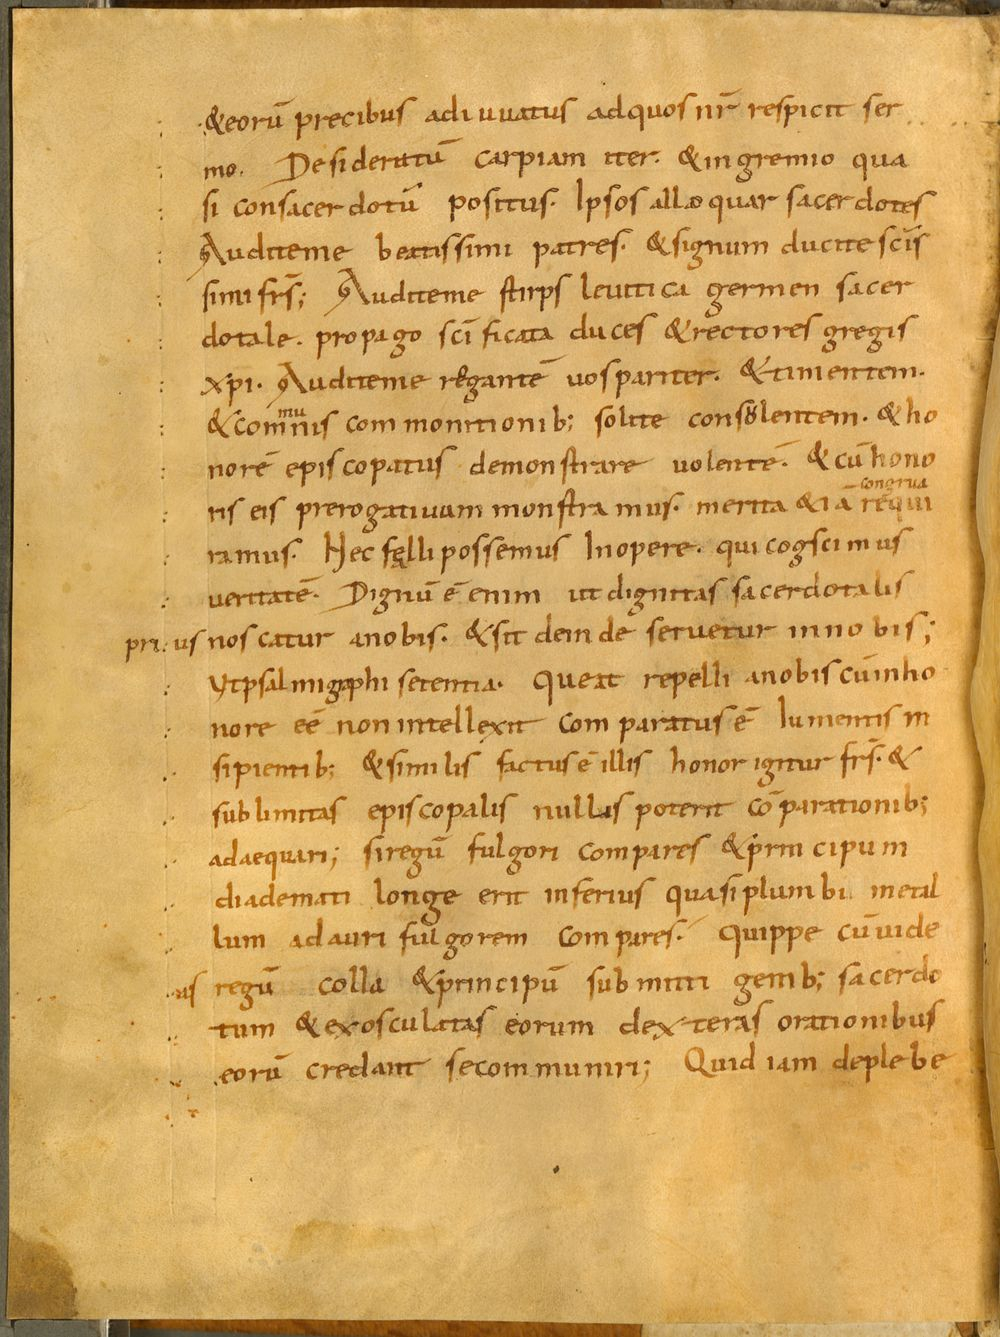 &eorū precibus adiuuatus adquos nr̄ respicit ser
mo. Desideratū carpiam iter. &ingremio qua
si consacerdotū positus. Ipsos alloquar sacerdotes
Auditeme beatissimi patres. &signum ducite scīs
simi frs̄; Auditeme stirps leuitica germen sacer
dotale. propago scīficata duces &rectores gregis
xp̄i. Auditeme rogantē uospariter. &timentem.
&commu̇nis commonitionib; solite consolentem. &ho
norē episcopatus demonstrare uolentē. &cū hono
congrua
ris eis prerogatiuam monstramus. merita &iā requi
ramus. Hec fęlli possemus Inopere. qui cogscimus
ueritatē. Dignū ē enim ut dignitas sacerdotalis
prius noscatur anobis. &sit deinde seruetur innobis;
Vtpsalmigaphi setentia. Queat repelli anobis cūinho
nore eē nonintellexit comparatus ē Iumentis in
sipientib; &similis factus ē illis honor igitur frs̄. &
sublimitas episcopalis nullis poterit cōparationib;
adaequari; siregū fulgori compares &principum
diademati longe erit inferius quasi plumbi metal
lum adauri fulgorem compares. Quippe cū uide
as regū colla &principū submitti genib; sacerdo
tum &exosculatas eorum dexteras orationibus
eorū credant secommuniri; Quid iam deplebe